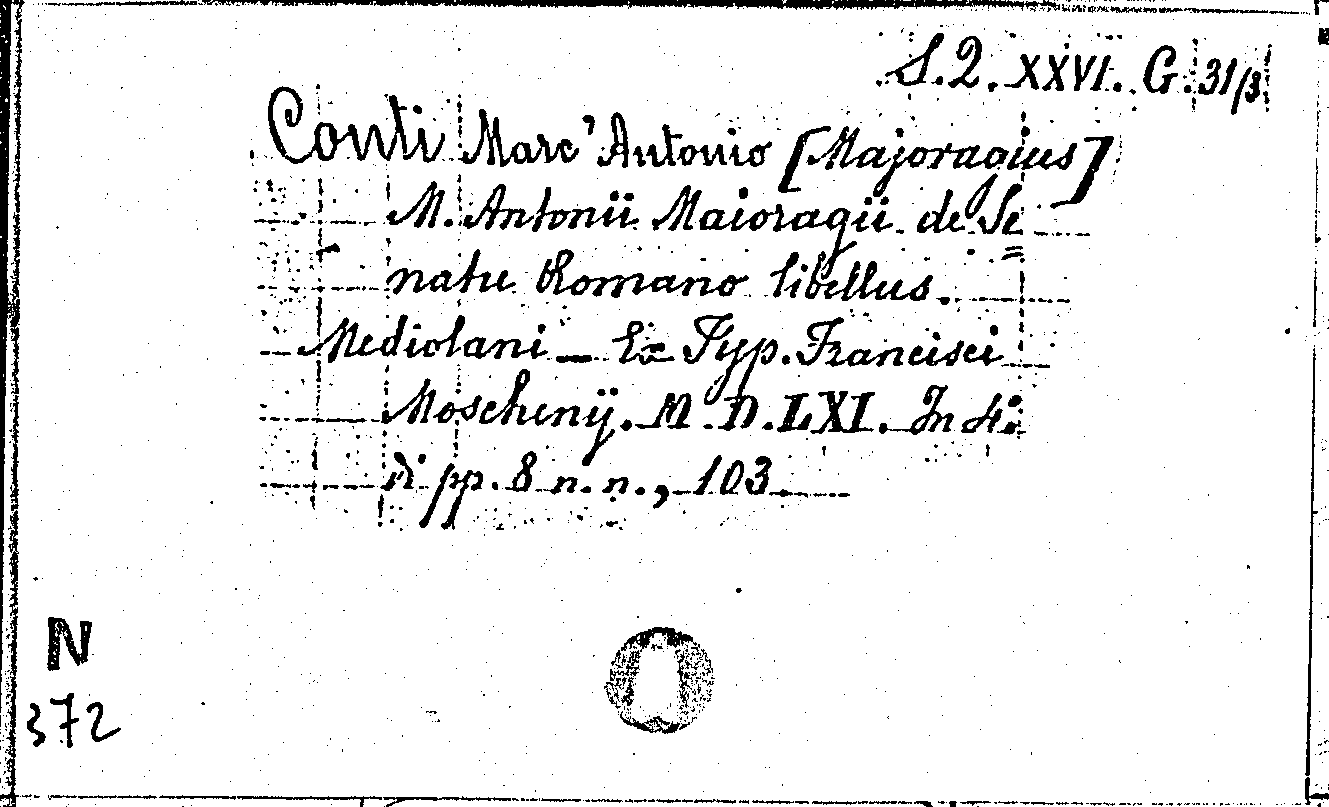 S.2. XXVI. G. 31/3
Conti Marc' Antonio [Majoragius]
M. Antonii Maioragii de Se
natu Romano libellus.
Mediolani – Ex Typ. Francisci
Moschenij. M.D.LXI. In 4:
di pp. 8 n. n., 103
N
372